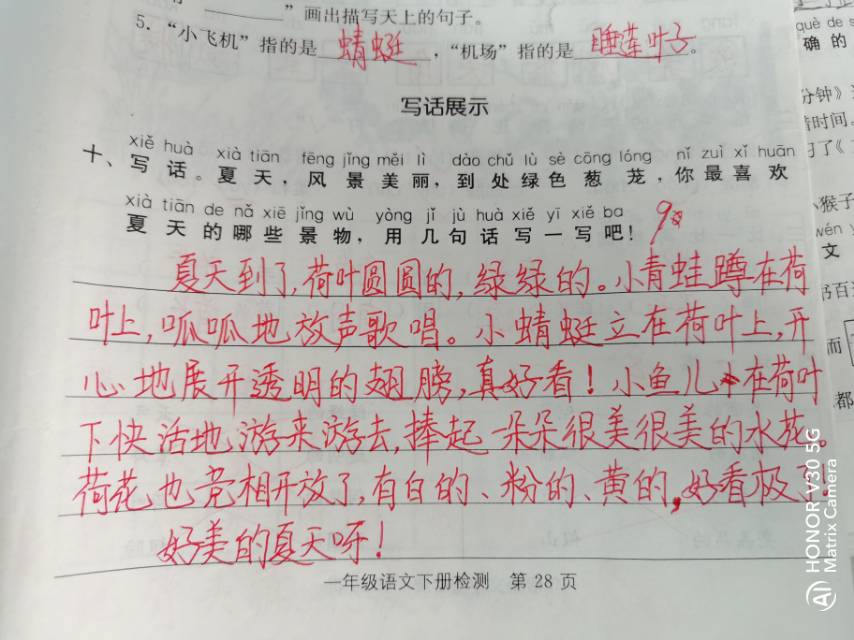 ”画出描写天上的句子。
5.“小飞机”指的是 蜻蜓 ,“机场”指的是 睡莲叶子 。
写话展示
xiě huà xià tiān fēng jǐng měi lì dào chǔ lǜ sè cōng lóng nǐ zuì xǐ huān
十、写话。夏天,风景美丽,到处绿色葱茏,你最喜欢
xià tiān de nǎ xiē jǐng wù yòng jǐ jù huà xiě yī xiě ba
夏天的哪些景物,用几句话写一写吧!
夏天到了,荷叶圆圆的,绿绿的。小青蛙蹲在荷
叶上,呱呱地放声歌唱。小蜻蜓立在荷叶上,开
心地展开透明的翅膀,真好看!小鱼儿在荷叶
下快活地游来游去,捧起一朵朵很美很美的水花。
荷花也竞相开放了,有白的、粉的、黄的,好看极了。
好美的夏天呀!
一年级语文下册检测 第 28 页
què de s
确 的
分钟》
时间。
习了《
猴子
wén
文
书百
而
都
HONOR V30 5G
Matrix Camera